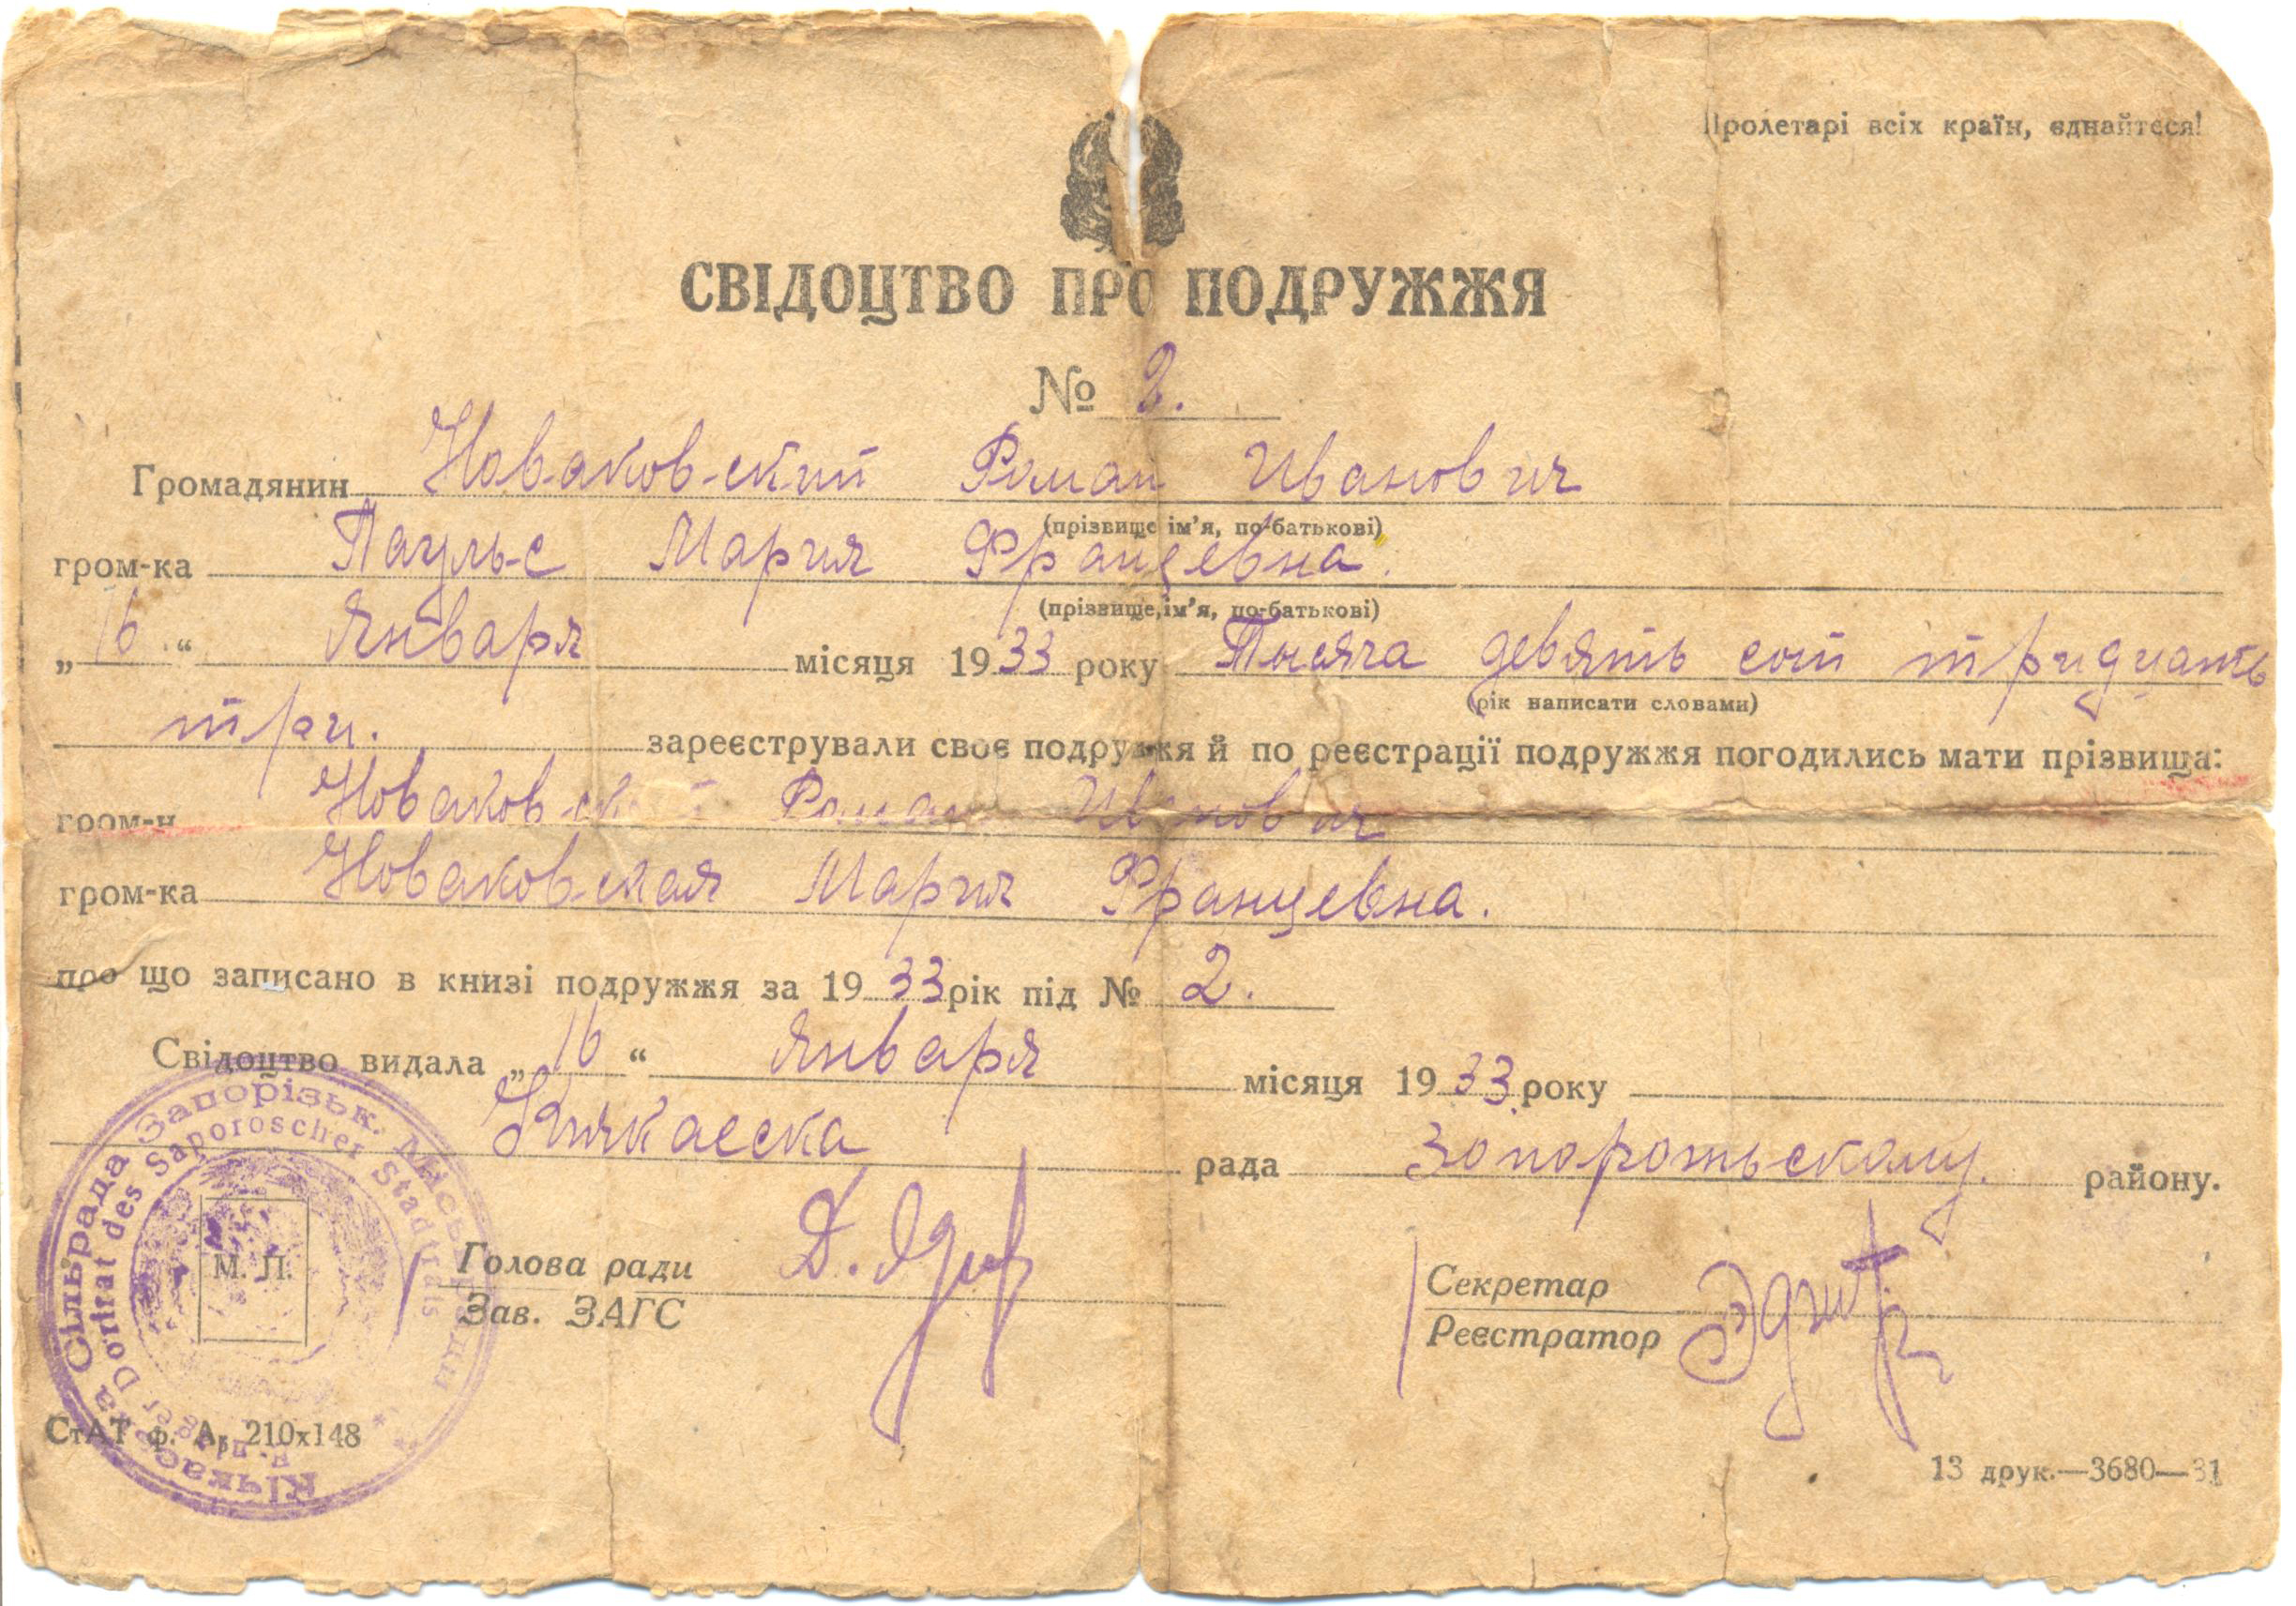 Пролетарі всіх країн, єднайтеся!
СВІДОЦТВО ПРО ПОДРУЖЖЯ
№ 2.
Громадянин Новаковский Роман Иванович
(прізвище ім’я, по-батькові)
гром-ка Паульс Мария Францевна.
(прізвище, ім’я, по-батькові)
„16“ Января місяця 1933 року Тысяча девять сот тридцать
(рік написати словами)
три. зареєстрували своє подружжя й по реєстрації подружжя погодились мати прізвища:
гром-н Новаковский Роман Иванович
гром-ка Новаковская Мария Францевна.
про що записано в книзі подружжя за 1933 рік під № 2.
Свідоцтво видала „16“ Января місяця 1933 року
Кичкасска рада Запорожьскому. району.
Голова ради
Зав. ЗАГС
Секретар
Реєстратор
М. П.
Кічкаська Сільрада Запорізьк. Міськради
Dorfrat des Saporoscher Stadtrats
СтАТ ф. А, 210х148
13 друк.—3680—31